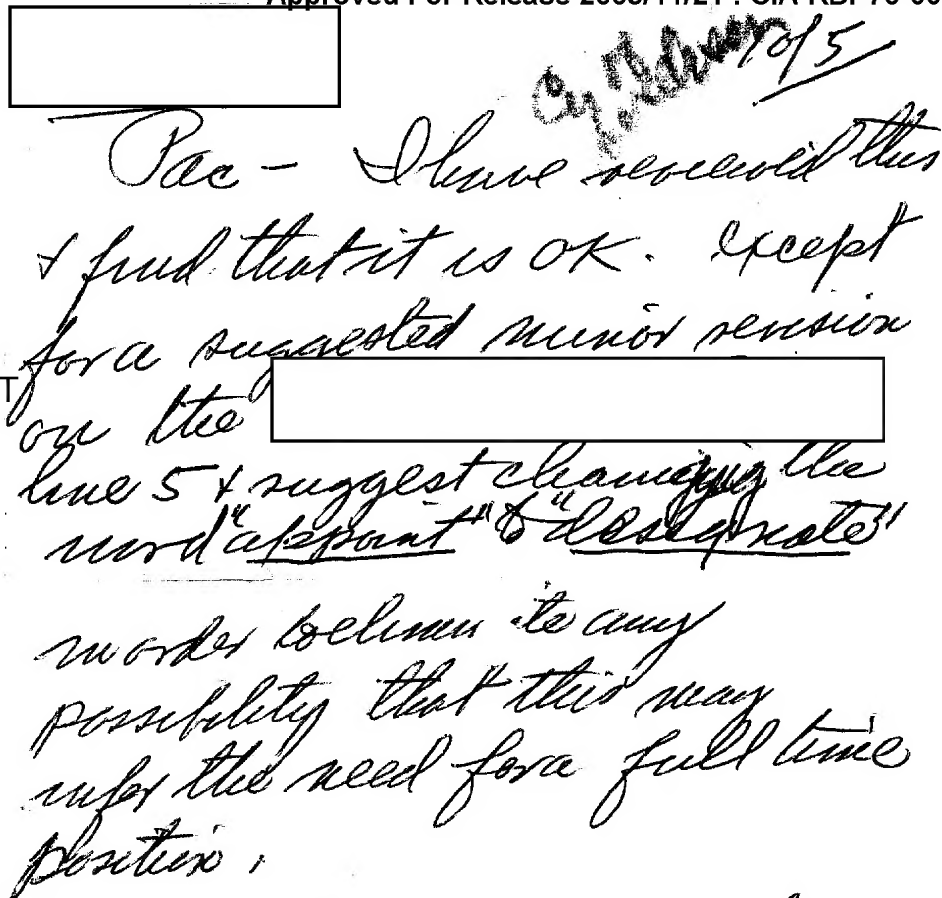 Approved For Release 2003/11/21 : CIA-RDP70-00
1 of 5
Pac - I have reviewed this
& find that it is OK. except
for a suggested minor revision
T
on the
line 5 & suggest changing the
word "appoint" to "designate"
in order to eliminate any
possibility that this may
infer the need for a full time
position.